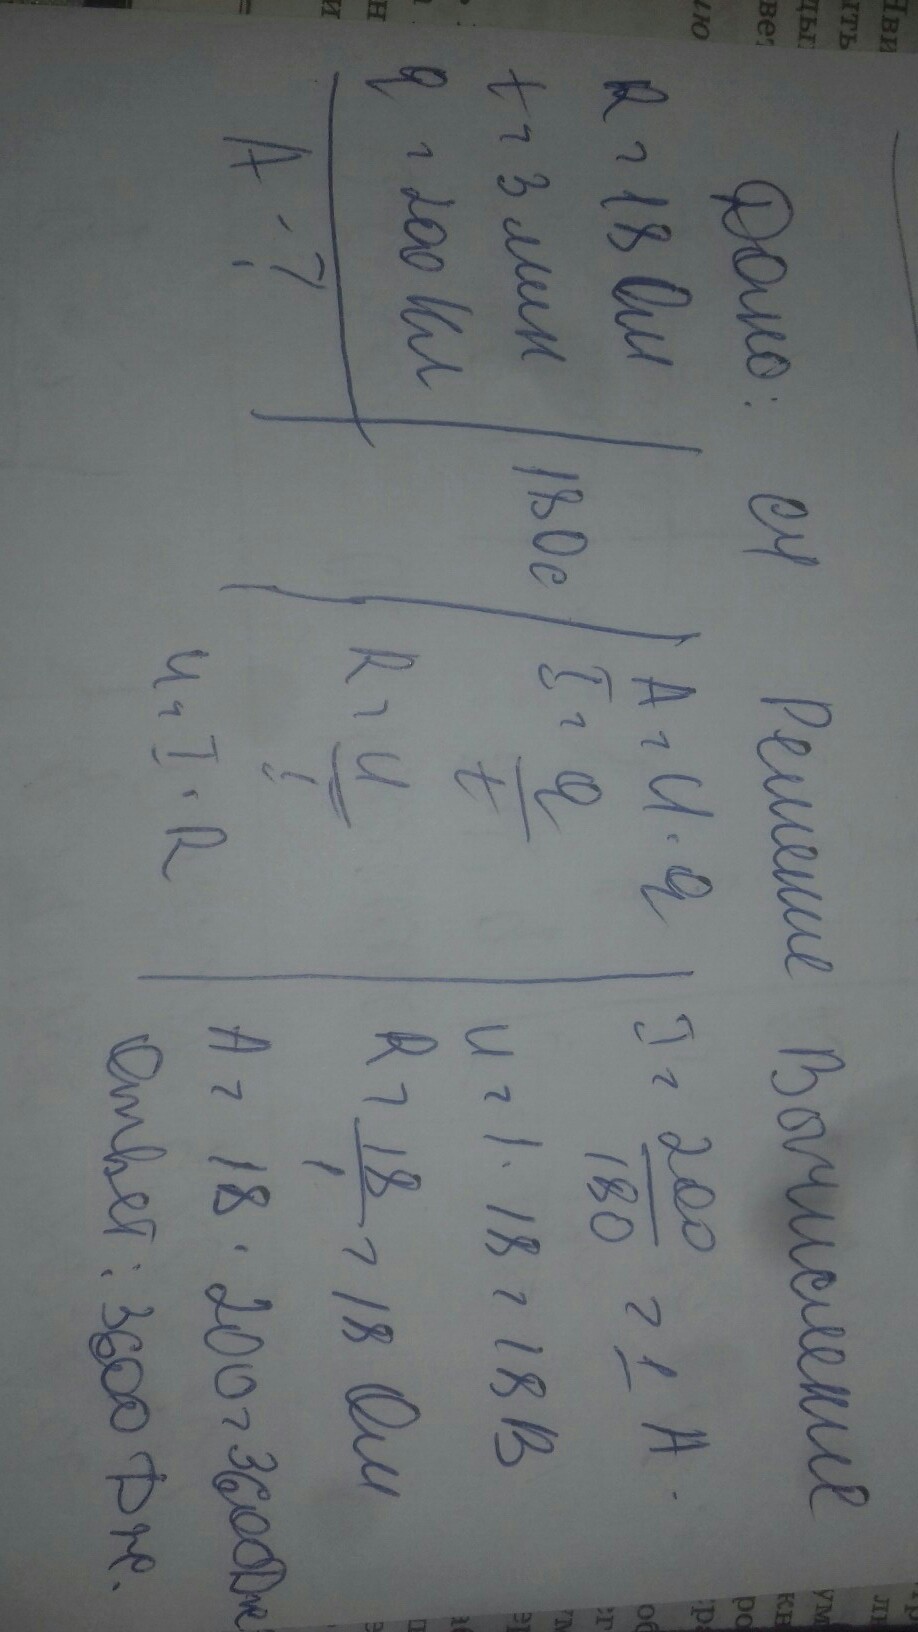 Дано: СИ Решение Вычисление
R = 18 Ом
t = 3 мин
q = 200 Кл
A - ?
180с
A = U · q
I = q/t
R = U/I
U = I · R
I = 200/180 = 1 А.
U = 1 · 18 = 18 В
R = 18/1 = 18 Ом
A = 18 · 200 = 3600Дж
Ответ: 3600 Дж.